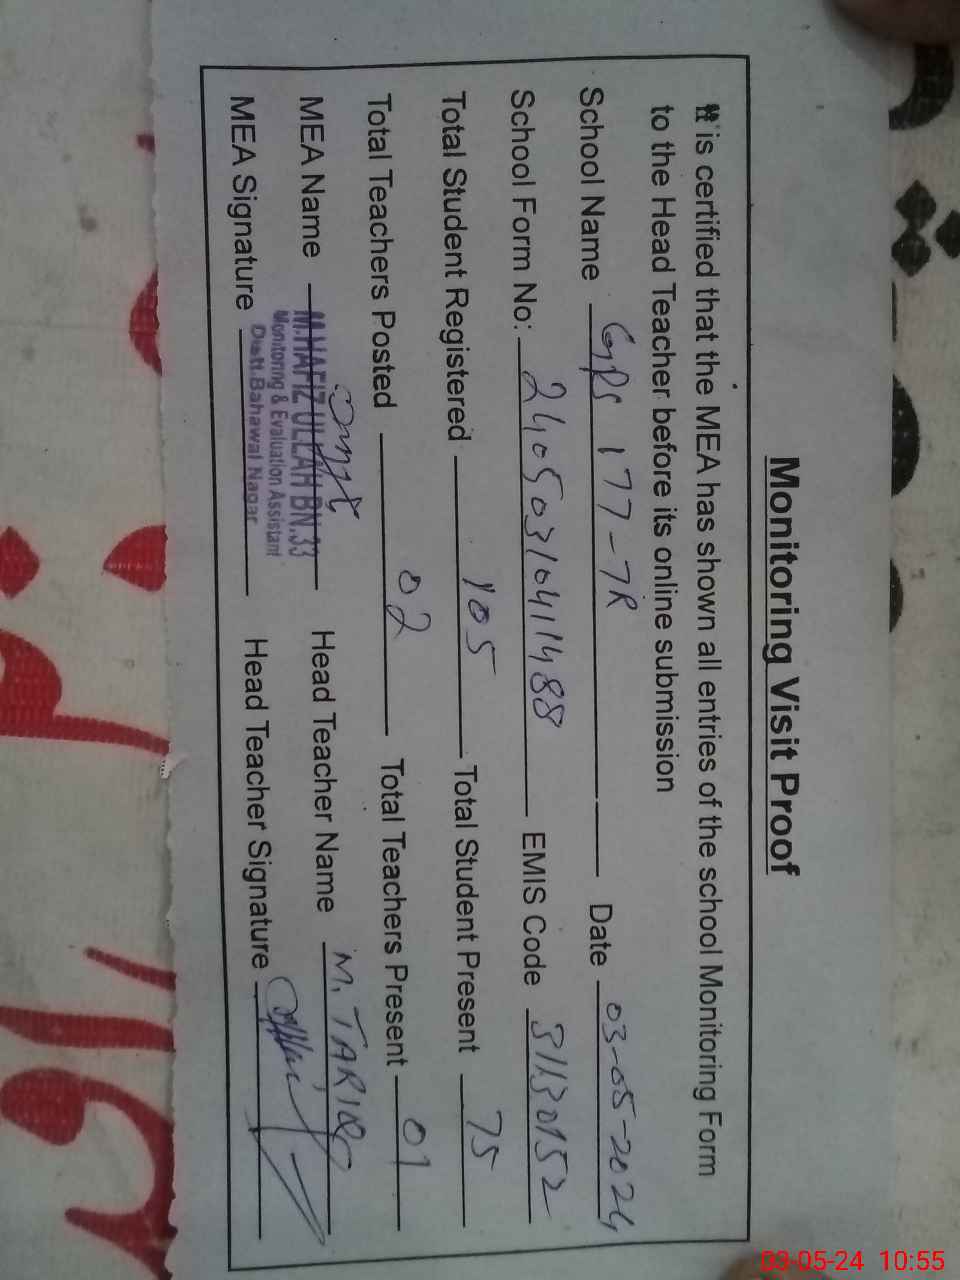 Monitoring Visit Proof
It is certified that the MEA has shown all entries of the school Monitoring Form
to the Head Teacher before its online submission
School Name GPS 177-7R Date 03-05-2024
School Form No: 2405031041488 EMIS Code 31130152
Total Student Registered 105 Total Student Present 75
Total Teachers Posted 02 Total Teachers Present 01
MEA Name M.HAFIZ ULLAH BN.33 Head Teacher Name M. TARIQ
Monitoring & Evaluation Assistant
MEA Signature Distt.Bahawal Nagar Head Teacher Signature
03-05-24 10:55